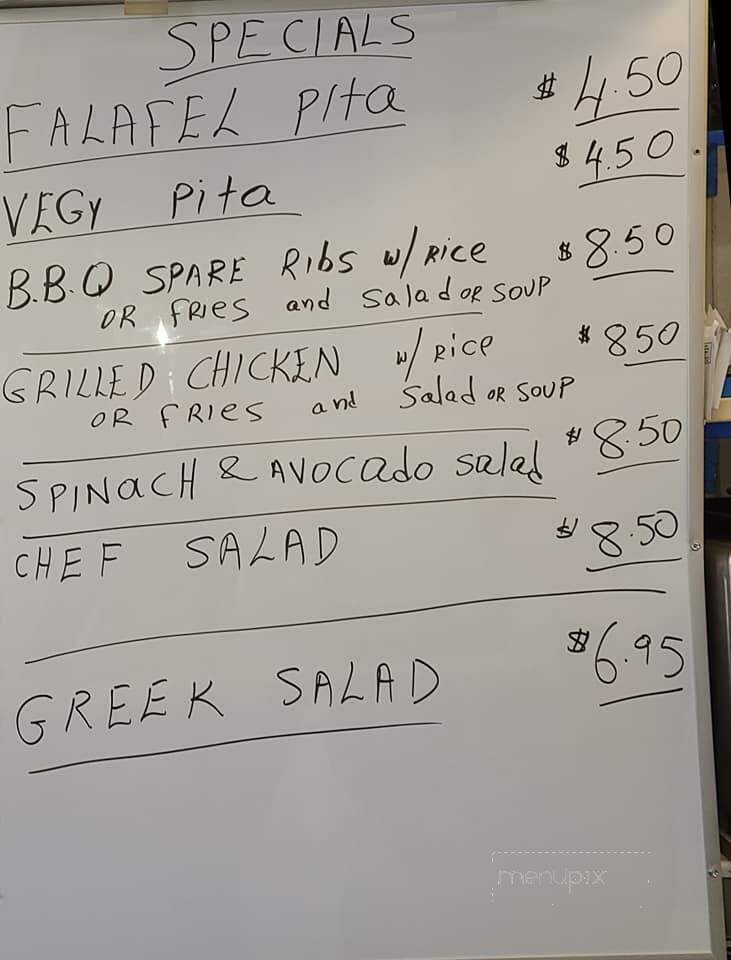 SPECIALS
FALAFEL PIta $4.50
VEGY Pita $4.50
B.B.Q SPARE RIbS w/RICE $8.50
OR FRIES and Salad OR SOUP
GRILLED CHICKEN w/ RICE $850
OR FRIES and Salad OR SOUP
SPINaCH & AVOCado Salad $8.50
CHEF SALAD $8.50
GREEK SALAD $6.95
menupix